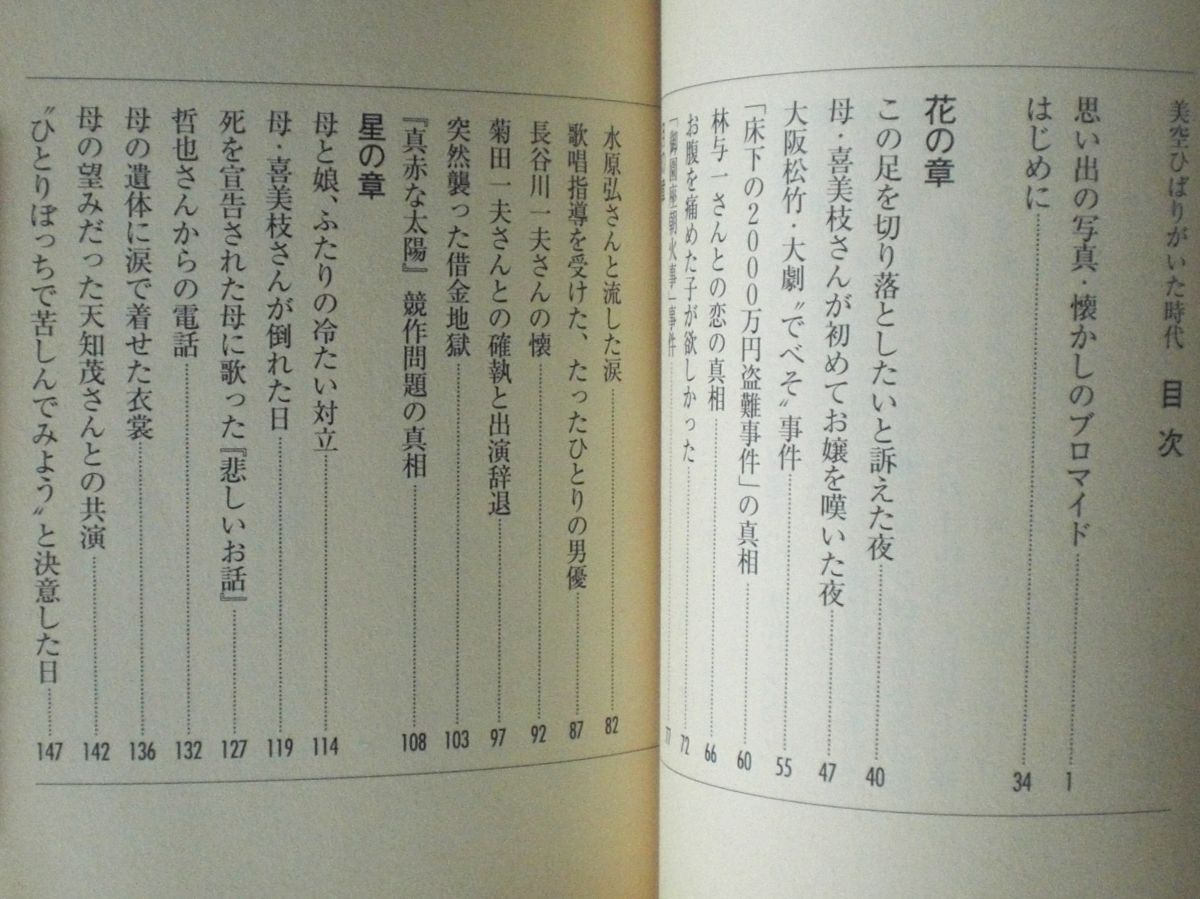 美空ひばりがいた時代 目次
思い出の写真・懐かしのブロマイド 1
はじめに 34
花の章
この足を切り落としたいと訴えた夜 40
母・喜美枝さんが初めてお嬢を嘆いた夜 47
大阪松竹・大劇〝でべそ〟事件 55
「床下の2000万円盗難事件」の真相 60
林与一さんとの恋の真相 66
お腹を痛めた子が欲しかった 72
「御園座朝火事」事件 77
水原弘さんと流した涙 82
歌唱指導を受けた、たったひとりの男優 87
長谷川一夫さんの懐 92
菊田一夫さんとの確執と出演辞退 97
突然襲った借金地獄 103
『真赤な太陽』競作問題の真相 108
星の章
母と娘、ふたりの冷たい対立 114
母・喜美枝さんが倒れた日 119
死を宣告された母に歌った『悲しいお話』 127
哲也さんからの電話 132
母の遺体に涙で着せた衣裳 136
母の望みだった天知茂さんとの共演 142
〝ひとりぼっちで苦しんでみよう〟と決意した日 147